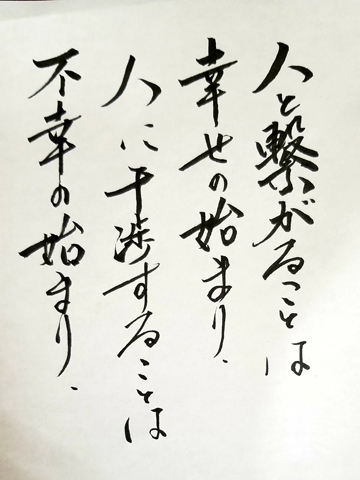 人と繋がることは
幸せの始まり.
人に干渉することは
不幸の始まり.